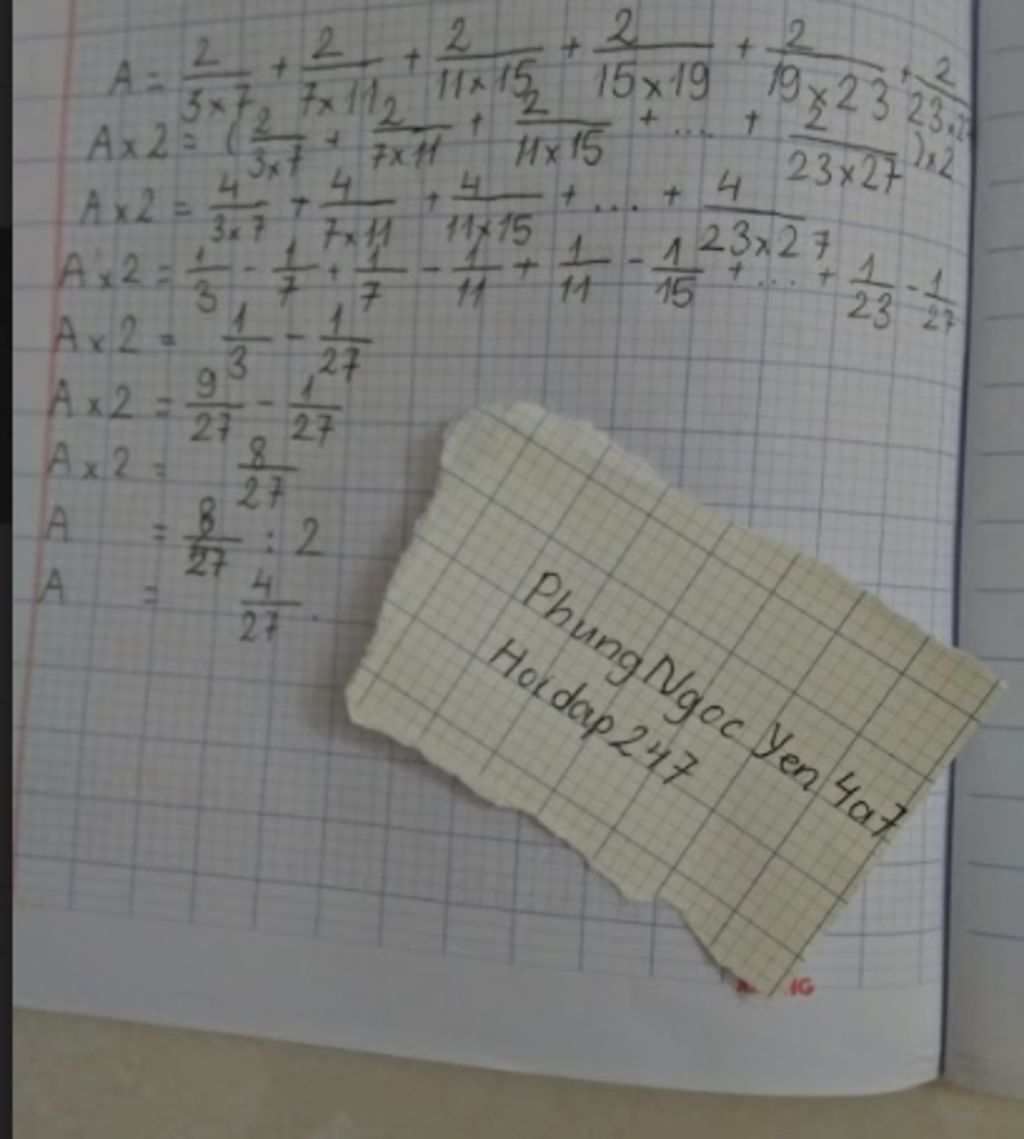 A = 2/3×7 + 2/7×11 + 2/11×15 + 2/15×19 + 2/19×23 + 2/23×27
A×2 = (2/3×7 + 2/7×11 + 2/11×15 + ... + 2/23×27)×2
A×2 = 4/3×7 + 4/7×11 + 4/11×15 + ... + 4/23×27
A×2 = 1/3 - 1/7 + 1/7 - 1/11 + 1/11 - 1/15 + ... + 1/23 - 1/27
A×2 = 1/3 - 1/27
A×2 = 9/27 - 1/27
A×2 = 8/27
A = 8/27 : 2
A = 4/27.
Phung Ngoc Yen 4a7
Hoidap247